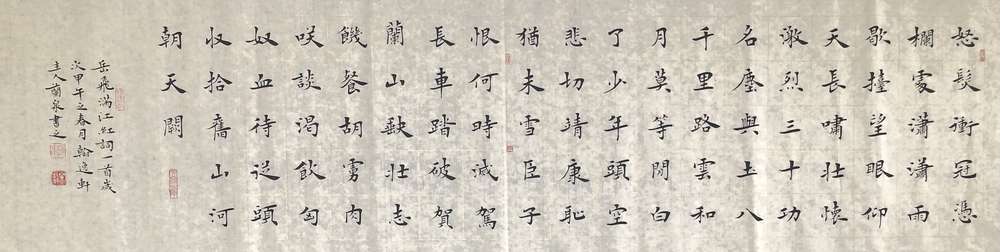 怒髮衝冠憑
欄處瀟瀟雨
歇擡望眼仰
天長嘯壯懷
激烈三十功
名塵與土八
千里路雲和
月莫等閒白
了少年頭空
悲切靖康恥
猶未雪臣子
恨何時滅駕
長車踏破賀
蘭山缺壯志
饑餐胡虜肉
咲談渴飲匈
奴血待從頭
收拾舊山河
朝天闕
岳飛滿江紅詞一首歲
次甲午之春月翰逸軒
主人蘭泉書之